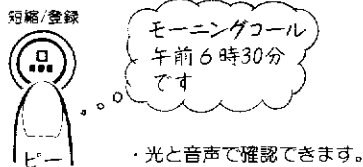 短縮/登録
モーニングコール
午前6時30分
です
ピー
・光と音声で確認できます。